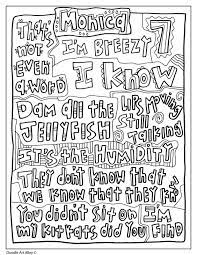 Monica 7
"That's not even a word
I'm Breezy
I Know
Dam all the Jellyfish
Lips Moving Still Talking
It's the Humidity
They don't know that
we know that they kn
You didn't sit on I'm
my kit kats did you find
Doodle Art Alley ©